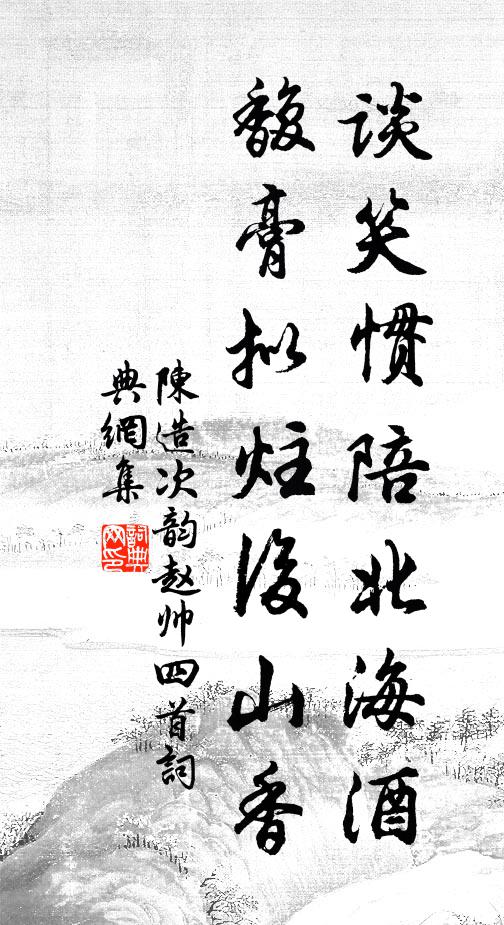 谈笑惯陪北海酒
馥膏拟炷後山香
陳造次韵赵帅四首詞
典網集
詞典
网印